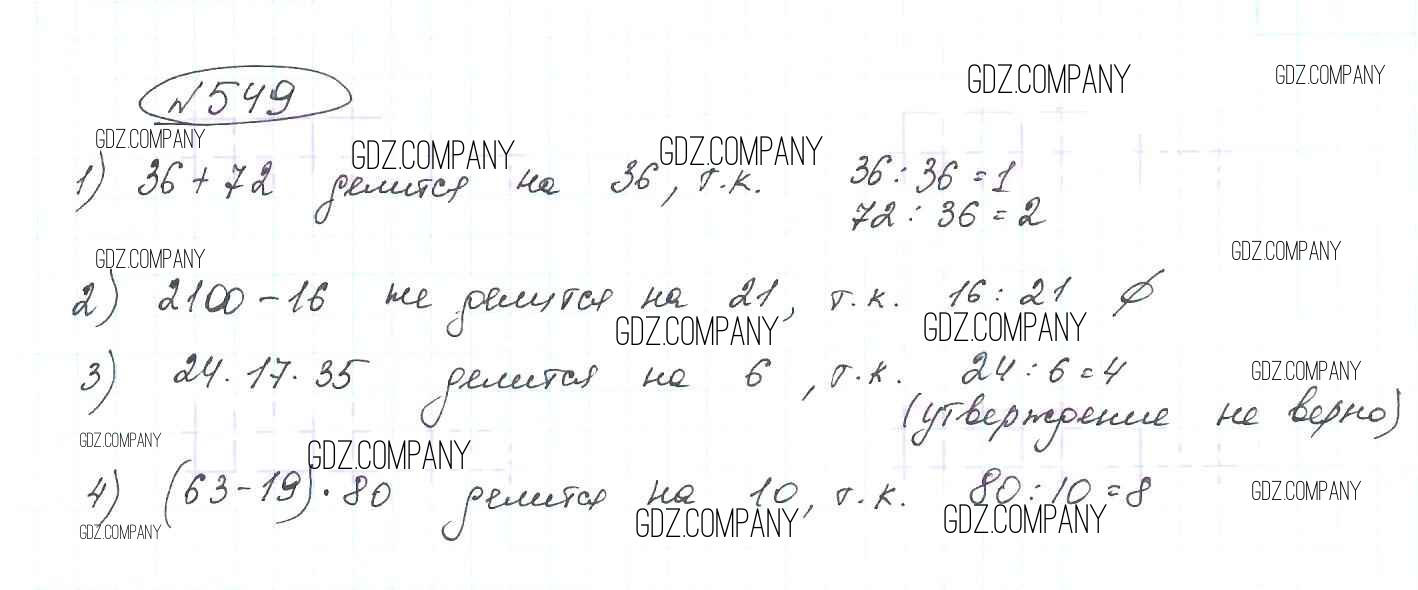 GDZ.COMPANY GDZ.COMPANY
№549
GDZ.COMPANY GDZ.COMPANY GDZ.COMPANY
1) 36 + 72 делится на 36, т.к. 36 : 36 = 1
72 : 36 = 2
GDZ.COMPANY GDZ.COMPANY
2) 2100 - 16 не делится на 21, т.к. 16 : 21 ∅
GDZ.COMPANY GDZ.COMPANY
3) 24 · 17 · 35 делится на 6, т.к. 24 : 6 = 4
GDZ.COMPANY
(утверждение не верно)
GDZ.COMPANY GDZ.COMPANY
4) (63 - 19) · 80 делится на 10, т.к. 80 : 10 = 8
GDZ.COMPANY
GDZ.COMPANY GDZ.COMPANY GDZ.COMPANY